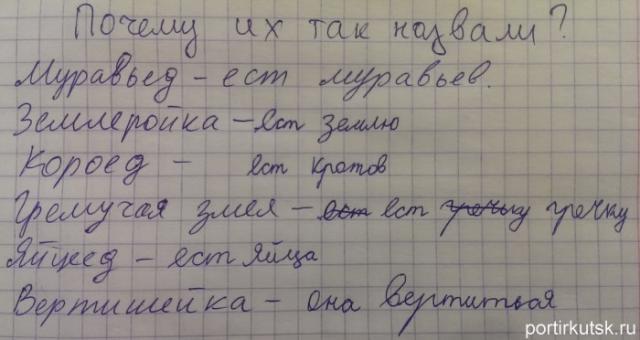 Почему их так назвали?
Муравьед - ест муравьев.
Землеройка - ест землю
Короед - ест кротов
Гремучая змея - ест ест гречьку гречку
Яйцеед - ест яйца
Вертишейка - она вертиться
portirkutsk.ru